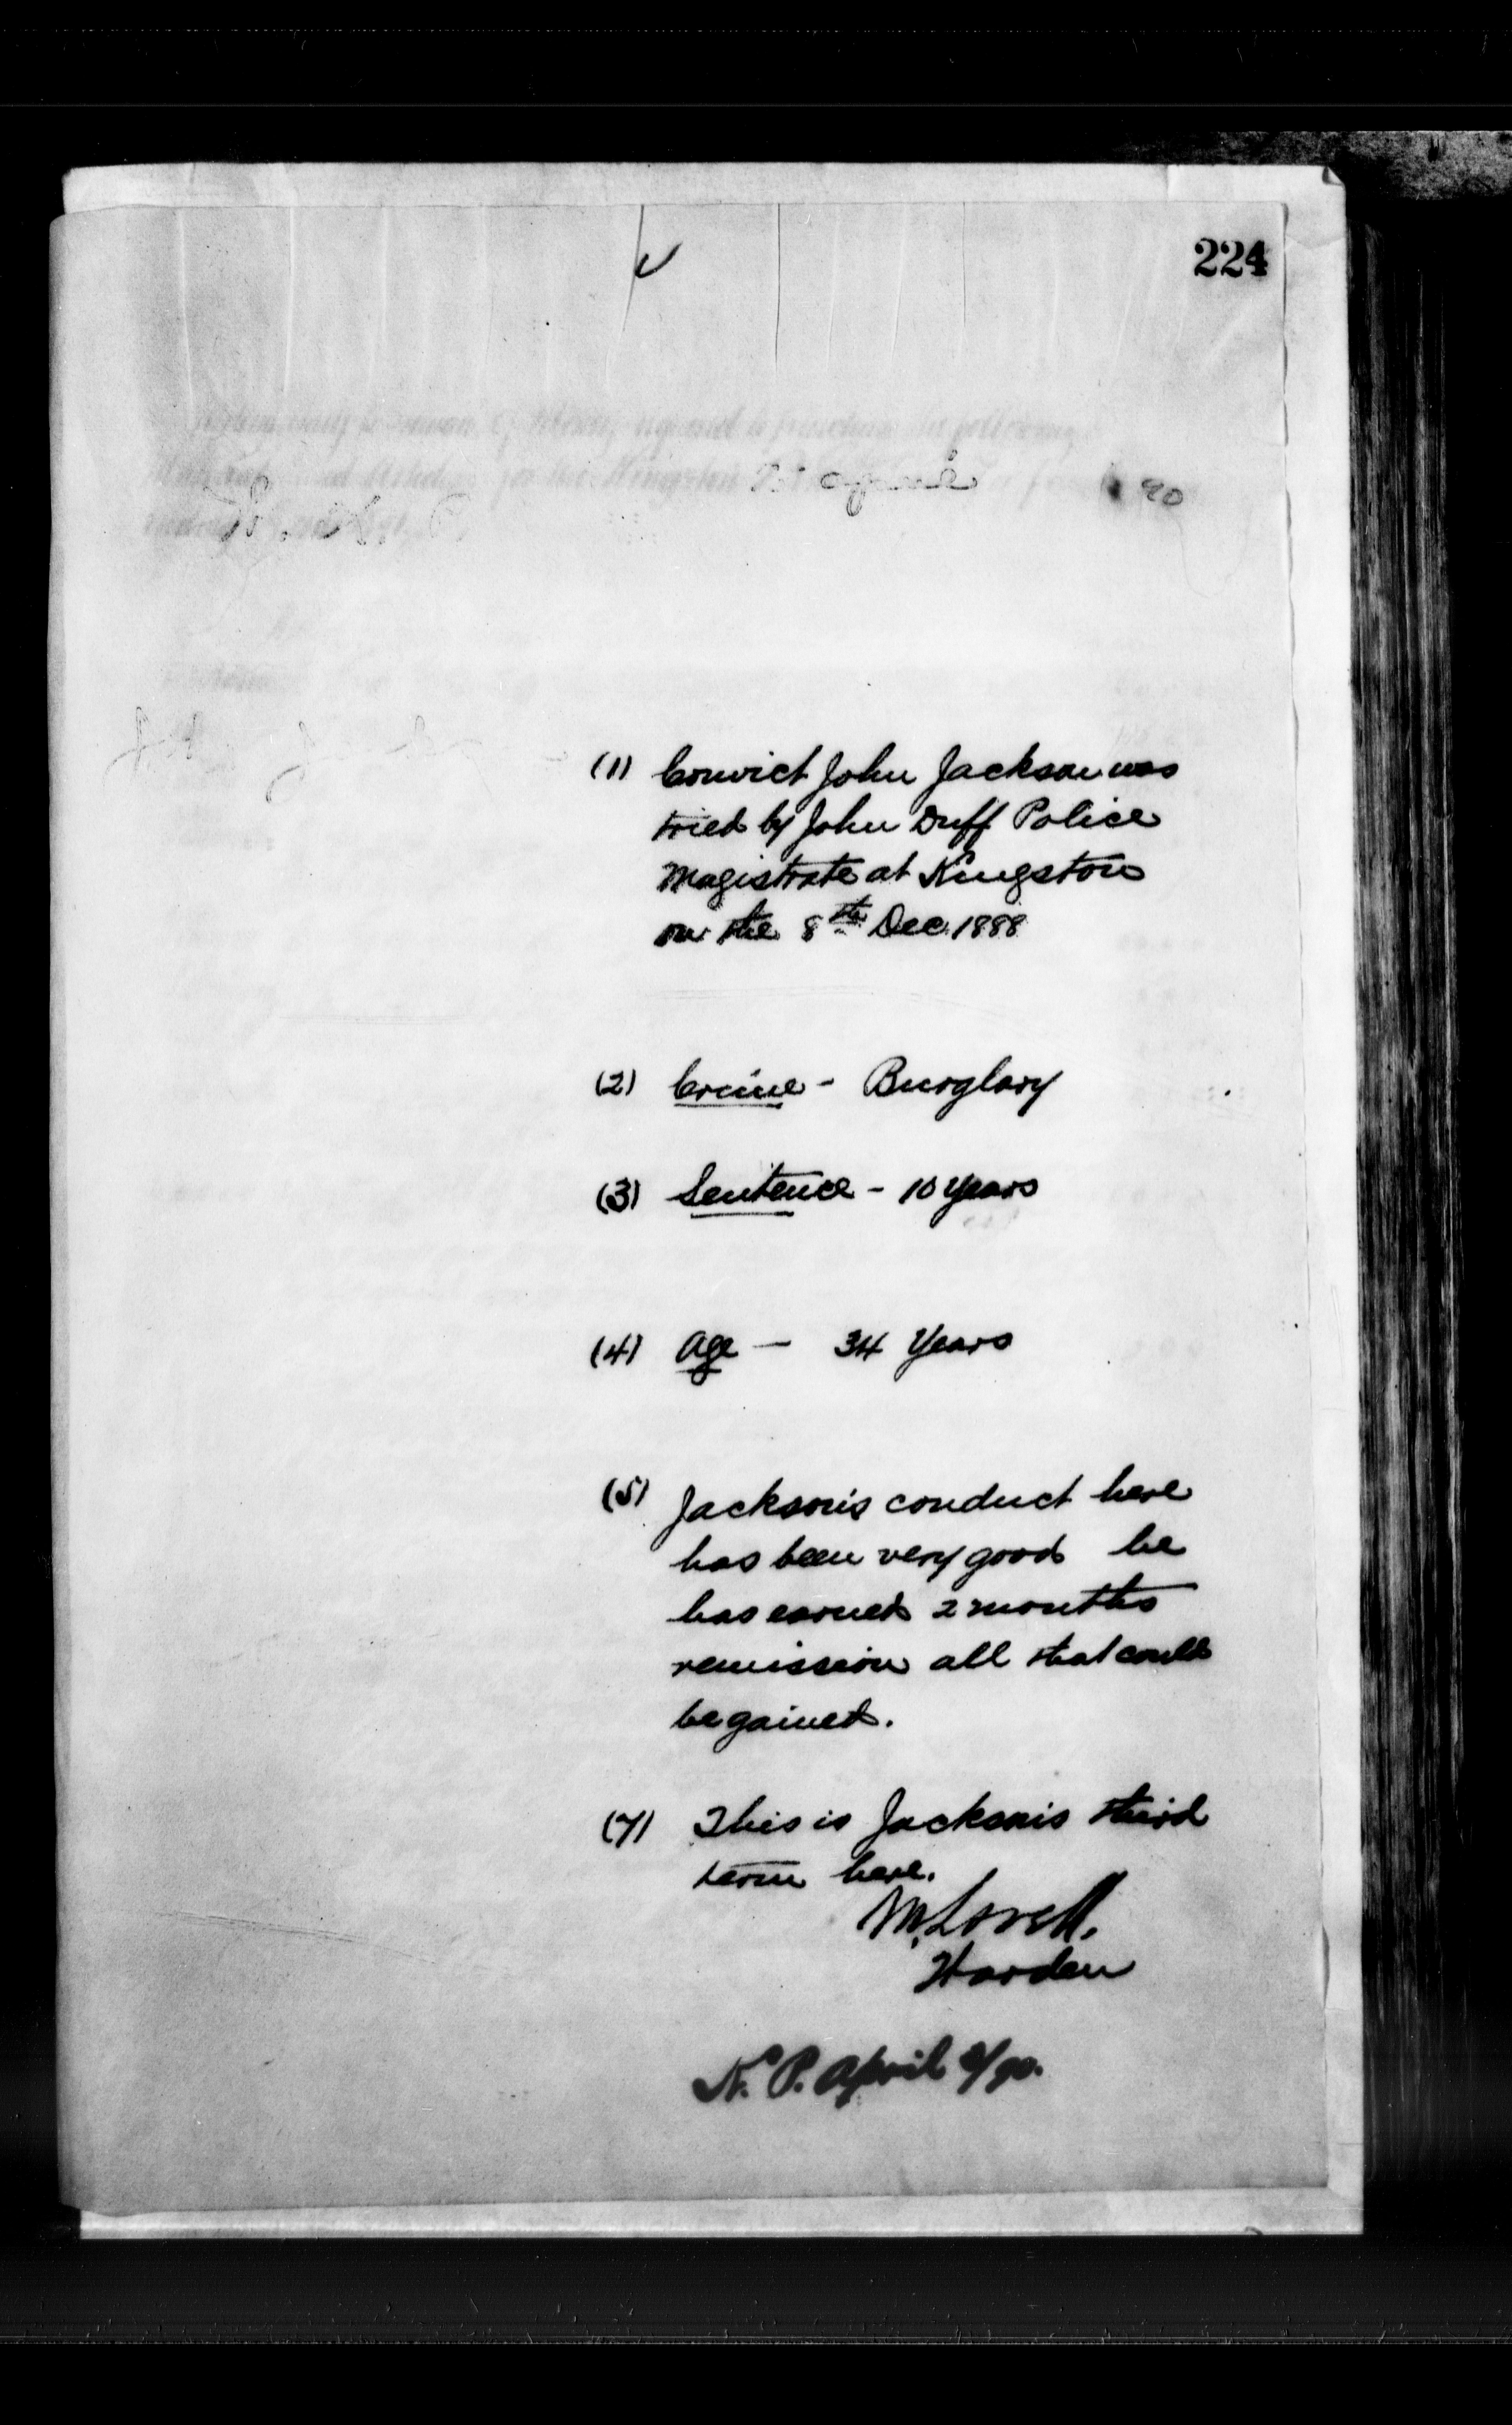 224
april 90
(1) Convict John Jackson was
tried by John Duff Police
Magistrate at Kingston
on the 8th Dec. 1888
(2) Crime - Burglary
(3) Sentence - 10 years
(4) Age - 34 Years
(5) Jackson's conduct here
has been very good he
has earned 2 months
remission all that could
be gained.
(7) This is Jackson's third
term here.
M. Lavell.
Warden
K. P. April 2/90.